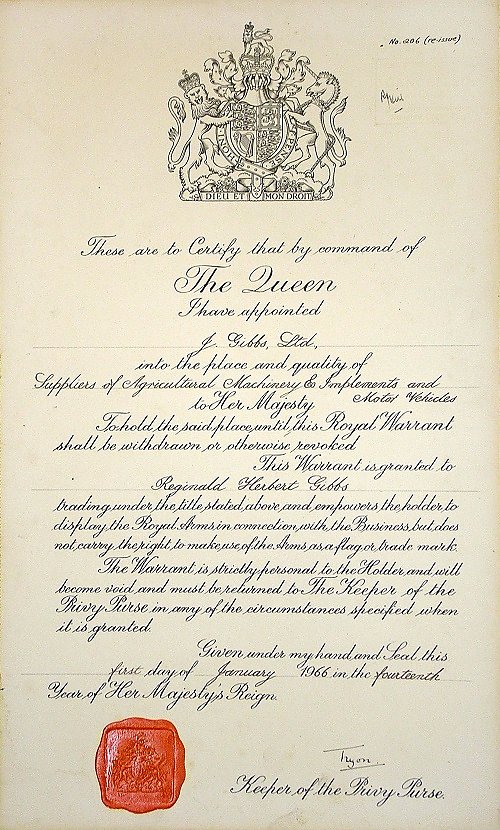 No. 1206 (re-issue)
HONI
PENSE
DIEU ET MON DROIT
These are to Certify that by command of
The Queen
I have appointed
J. Gibbs, Ltd.,
into the place and quality of
Suppliers of Agricultural Machinery & Implements and
Motor Vehicles
to Her Majesty
To hold the said place until this Royal Warrant
shall be withdrawn or otherwise revoked
This Warrant is granted to
Reginald Herbert Gibbs
trading under the title stated above and empowers the holder to
display the Royal Arms in connection with the Business but does
not carry the right to make use of the Arms as a flag or trade mark.
The Warrant is strictly personal to the Holder and will
become void and must be returned to The Keeper of the
Privy Purse in any of the circumstances specified when
it is granted.
Given under my hand and Seal this
first day of January 1966 in the fourteenth
Year of Her Majesty's Reign.
Tryon
Keeper of the Privy Purse.